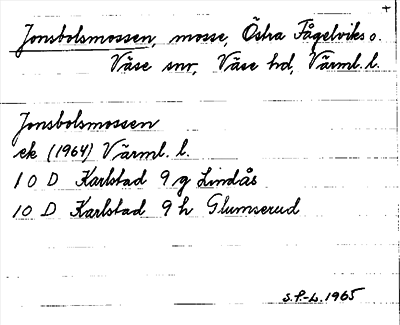 Jonsbolsmossen, mosse, Östra Fågelviks o.
Väse snr, Väse hd, Värml. l.
Jonsbolsmossen
ek (1964) Värml. l.
10 D Karlstad 9 g Lindås
10 D Karlstad 9 h Glumserud
S.P.-L. 1965